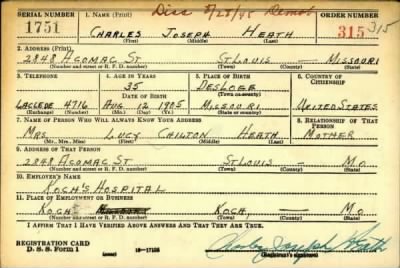 Diss 5/28/45 Demob
SERIAL NUMBER 1. NAME (Print) ORDER NUMBER
1751 CHARLES JOSEPH HEATH 315 315
(First) (Middle) (Last)
2. ADDRESS (Print)
2848 ACOMAC ST ST LOUIS — MISSOURI
(Number and street or R. F. D. number) (Town) (County) (State)
3. TELEPHONE 4. AGE IN YEARS 5. PLACE OF BIRTH 6. COUNTRY OF CITIZENSHIP
35 DESLOGE
DATE OF BIRTH (Town or county)
LACLEDE 4716 AUG. 12 1905 MISSOURI UNITED STATES
(Exchange) (Number) (Mo.) (Day) (Yr.) (State or country)
7. NAME OF PERSON WHO WILL ALWAYS KNOW YOUR ADDRESS 8. RELATIONSHIP OF THAT PERSON
MRS. LUCY CHILTON HEATH MOTHER
(Mr., Mrs., Miss) (First) (Middle) (Last)
9. ADDRESS OF THAT PERSON
2848 ACOMAC ST ST LOUIS — MO
(Number and street or R. F. D. number) (Town) (County) (State)
10. EMPLOYER'S NAME
KOCH'S HOSPITAL
11. PLACE OF EMPLOYMENT OR BUSINESS
KOCH KOCH MO.
(Number and street or R. F. D. number) (Town) (County) (State)
I AFFIRM THAT I HAVE VERIFIED ABOVE ANSWERS AND THAT THEY ARE TRUE.
REGISTRATION CARD
D. S. S. Form 1 (over) 16—17105 Charles Joseph Heath
(Registrant's signature)